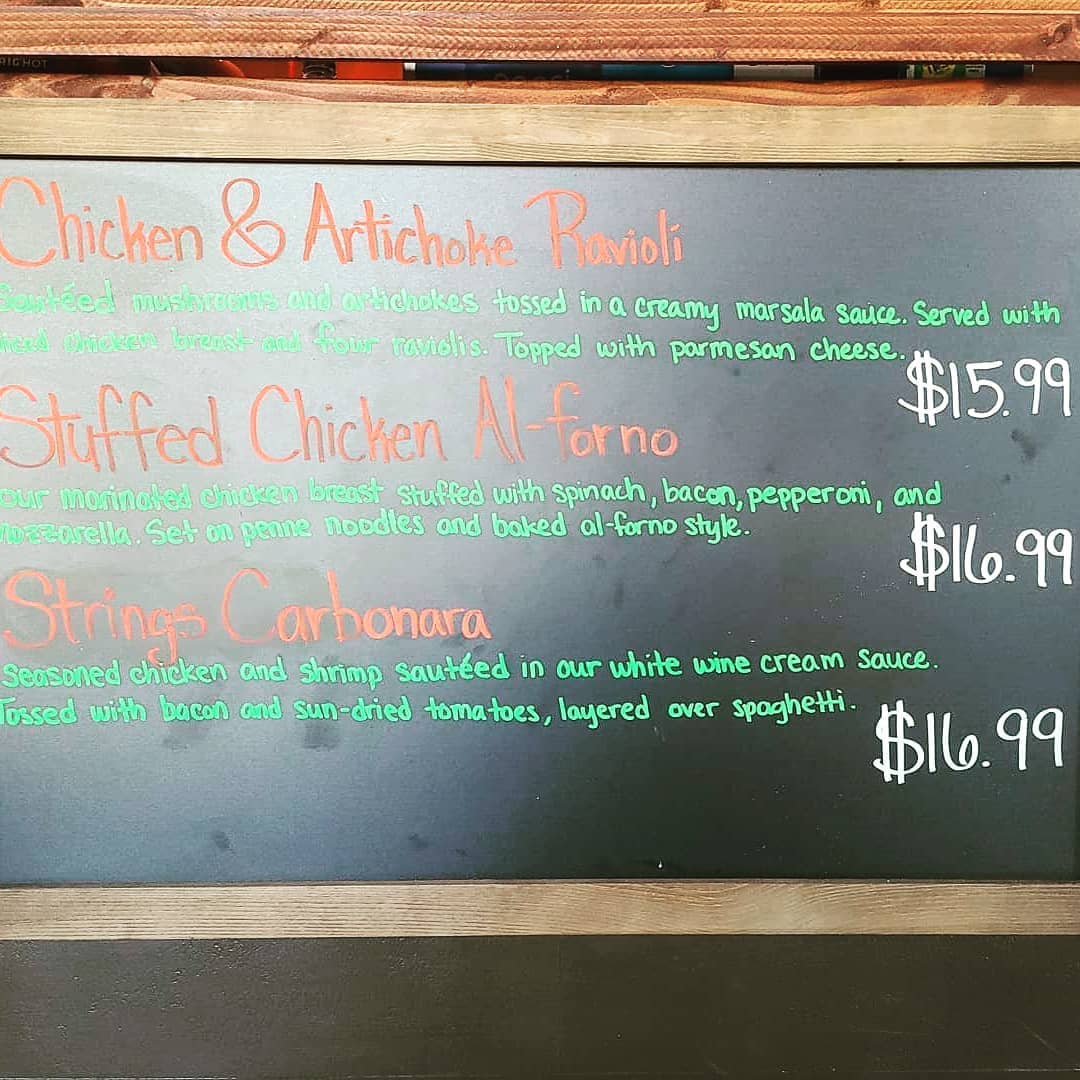 Chicken & Artichoke Ravioli
Sautéed mushrooms and artichokes tossed in a creamy marsala sauce. Served with
chicken breast and four raviolis. Topped with parmesan cheese.
$15.99
Stuffed Chicken Al-forno
our marinated chicken breast stuffed with spinach, bacon, pepperoni, and
mozzarella. Set on penne noodles and baked al-forno style.
$16.99
Strings Carbonara
Seasoned chicken and shrimp sautéed in our white wine cream sauce.
Tossed with bacon and sun-dried tomatoes, layered over spaghetti.
$16.99